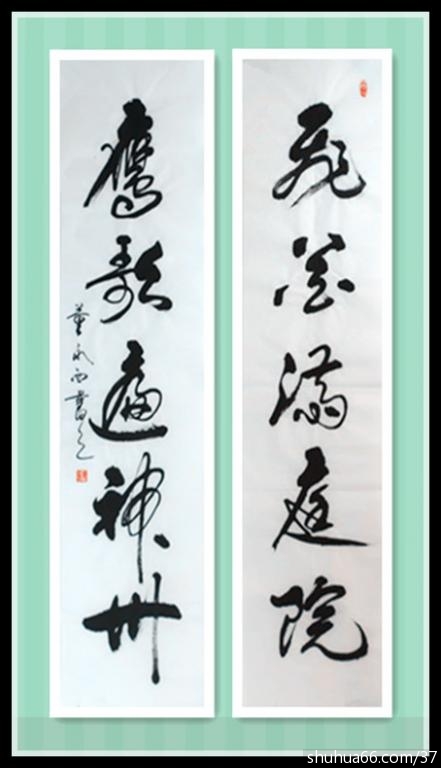 飛花滿庭院
鷹歌遍神州
董永西書之
shuhua66.com/37